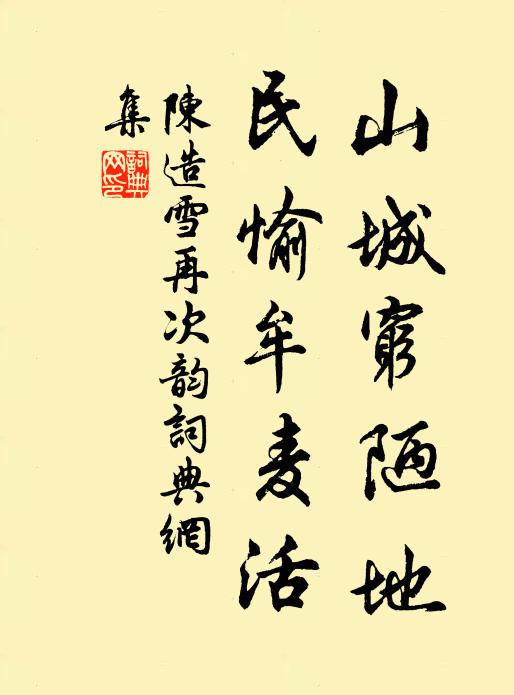 山城窮陋地
民愉牟麦活
陳造雪再次韵詞典網
集
詞典
网印